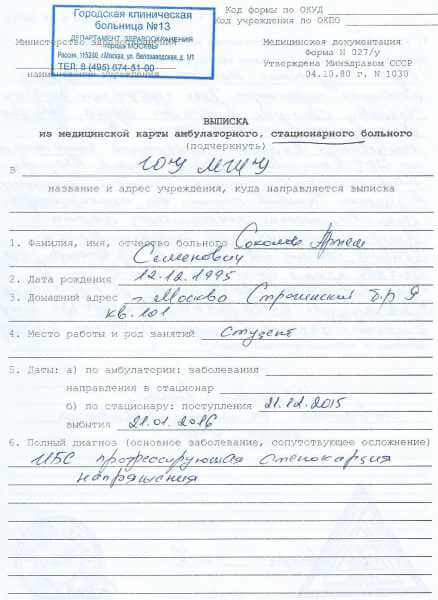 Городская клиническая
больница №13
ДЕПАРТАМЕНТ ЗДРАВООХРАНЕНИЯ
города МОСКВЫ
Россия, 115280, г.Москва, ул. Велозаводская, д. 1/1
ТЕЛ. 8 (495) 674-51-00
Код формы по ОКУД
Код учреждения по ОКПО
Министерство здравоохранения
наименование учреждения
Медицинская документация
Форма N 027/у
Утверждена Минздравом СССР
04.10.80 г. N 1030
ВЫПИСКА
из медицинской карты амбулаторного, стационарного больного
(подчеркнуть)
В ГОУ МГИУ
название и адрес учреждения, куда направляется выписка
1. Фамилия, имя, отчество больного Соколов Артем
Семенович
2. Дата рождения 12.12.1995
3. Домашний адрес г. Москва Строгинский б-р 9
кв.101
4. Место работы и род занятий студент
5. Даты: а) по амбулатории: заболевания
направления в стационар
б) по стационару: поступления 21.12.2015
выбытия 21.01.2016
6. Полный диагноз (основное заболевание, сопутствующее осложнение)
ИБС прогрессирующая стенокардия
напряжения